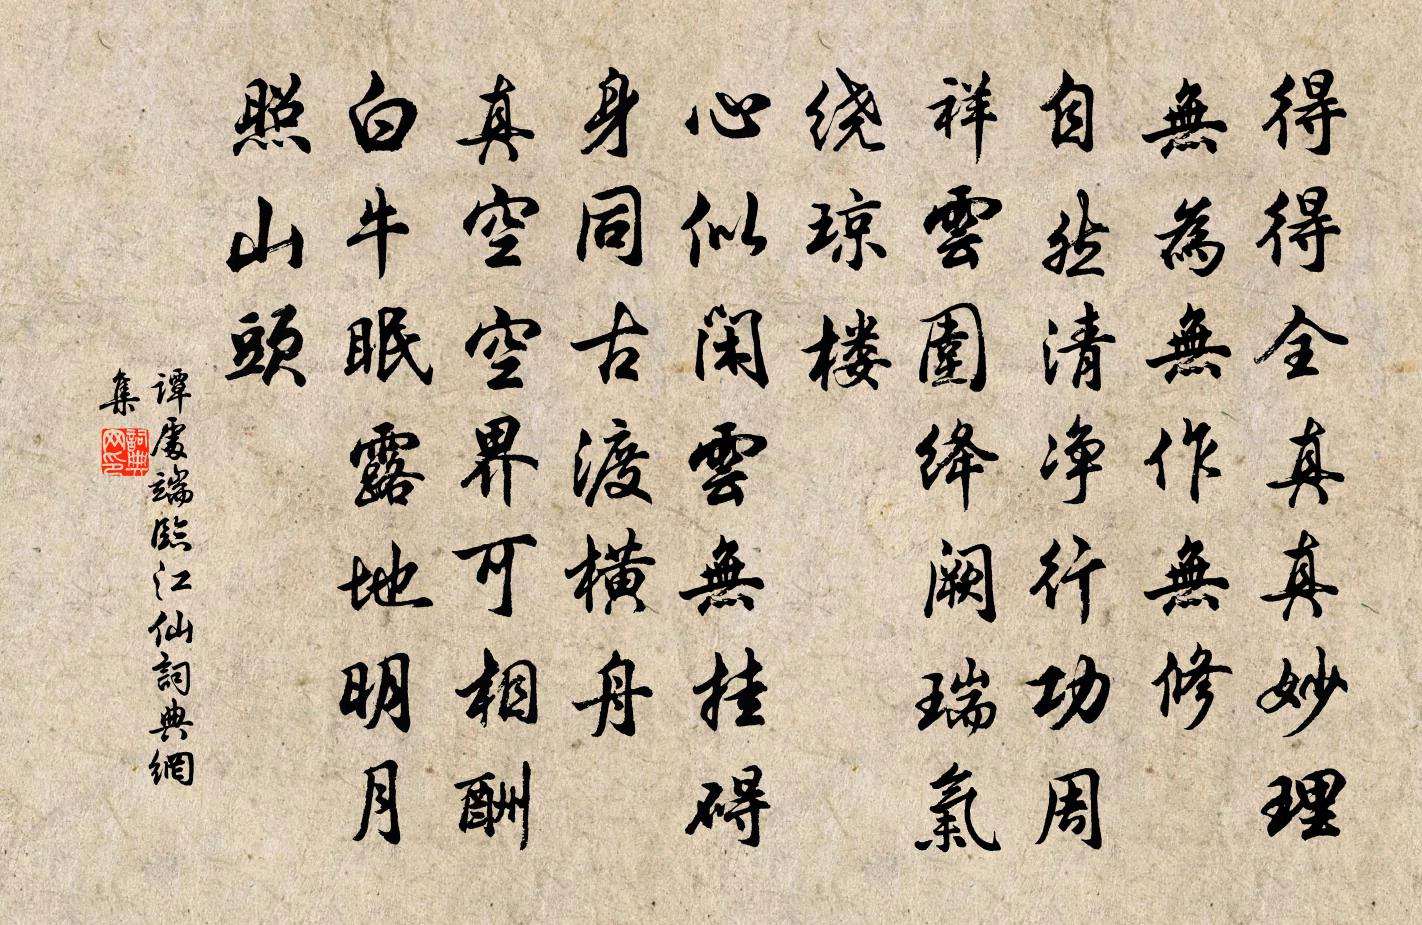 得得全真真妙理
無為無作無修
自然清净行功周
祥雲圍绛阙瑞氣
绕琼楼
心似闲雲無挂碍
身同古渡横舟
真空空界可相酬
白牛眠露地明月
照山頭
谭處端臨江仙詞典網
集
詞典网印